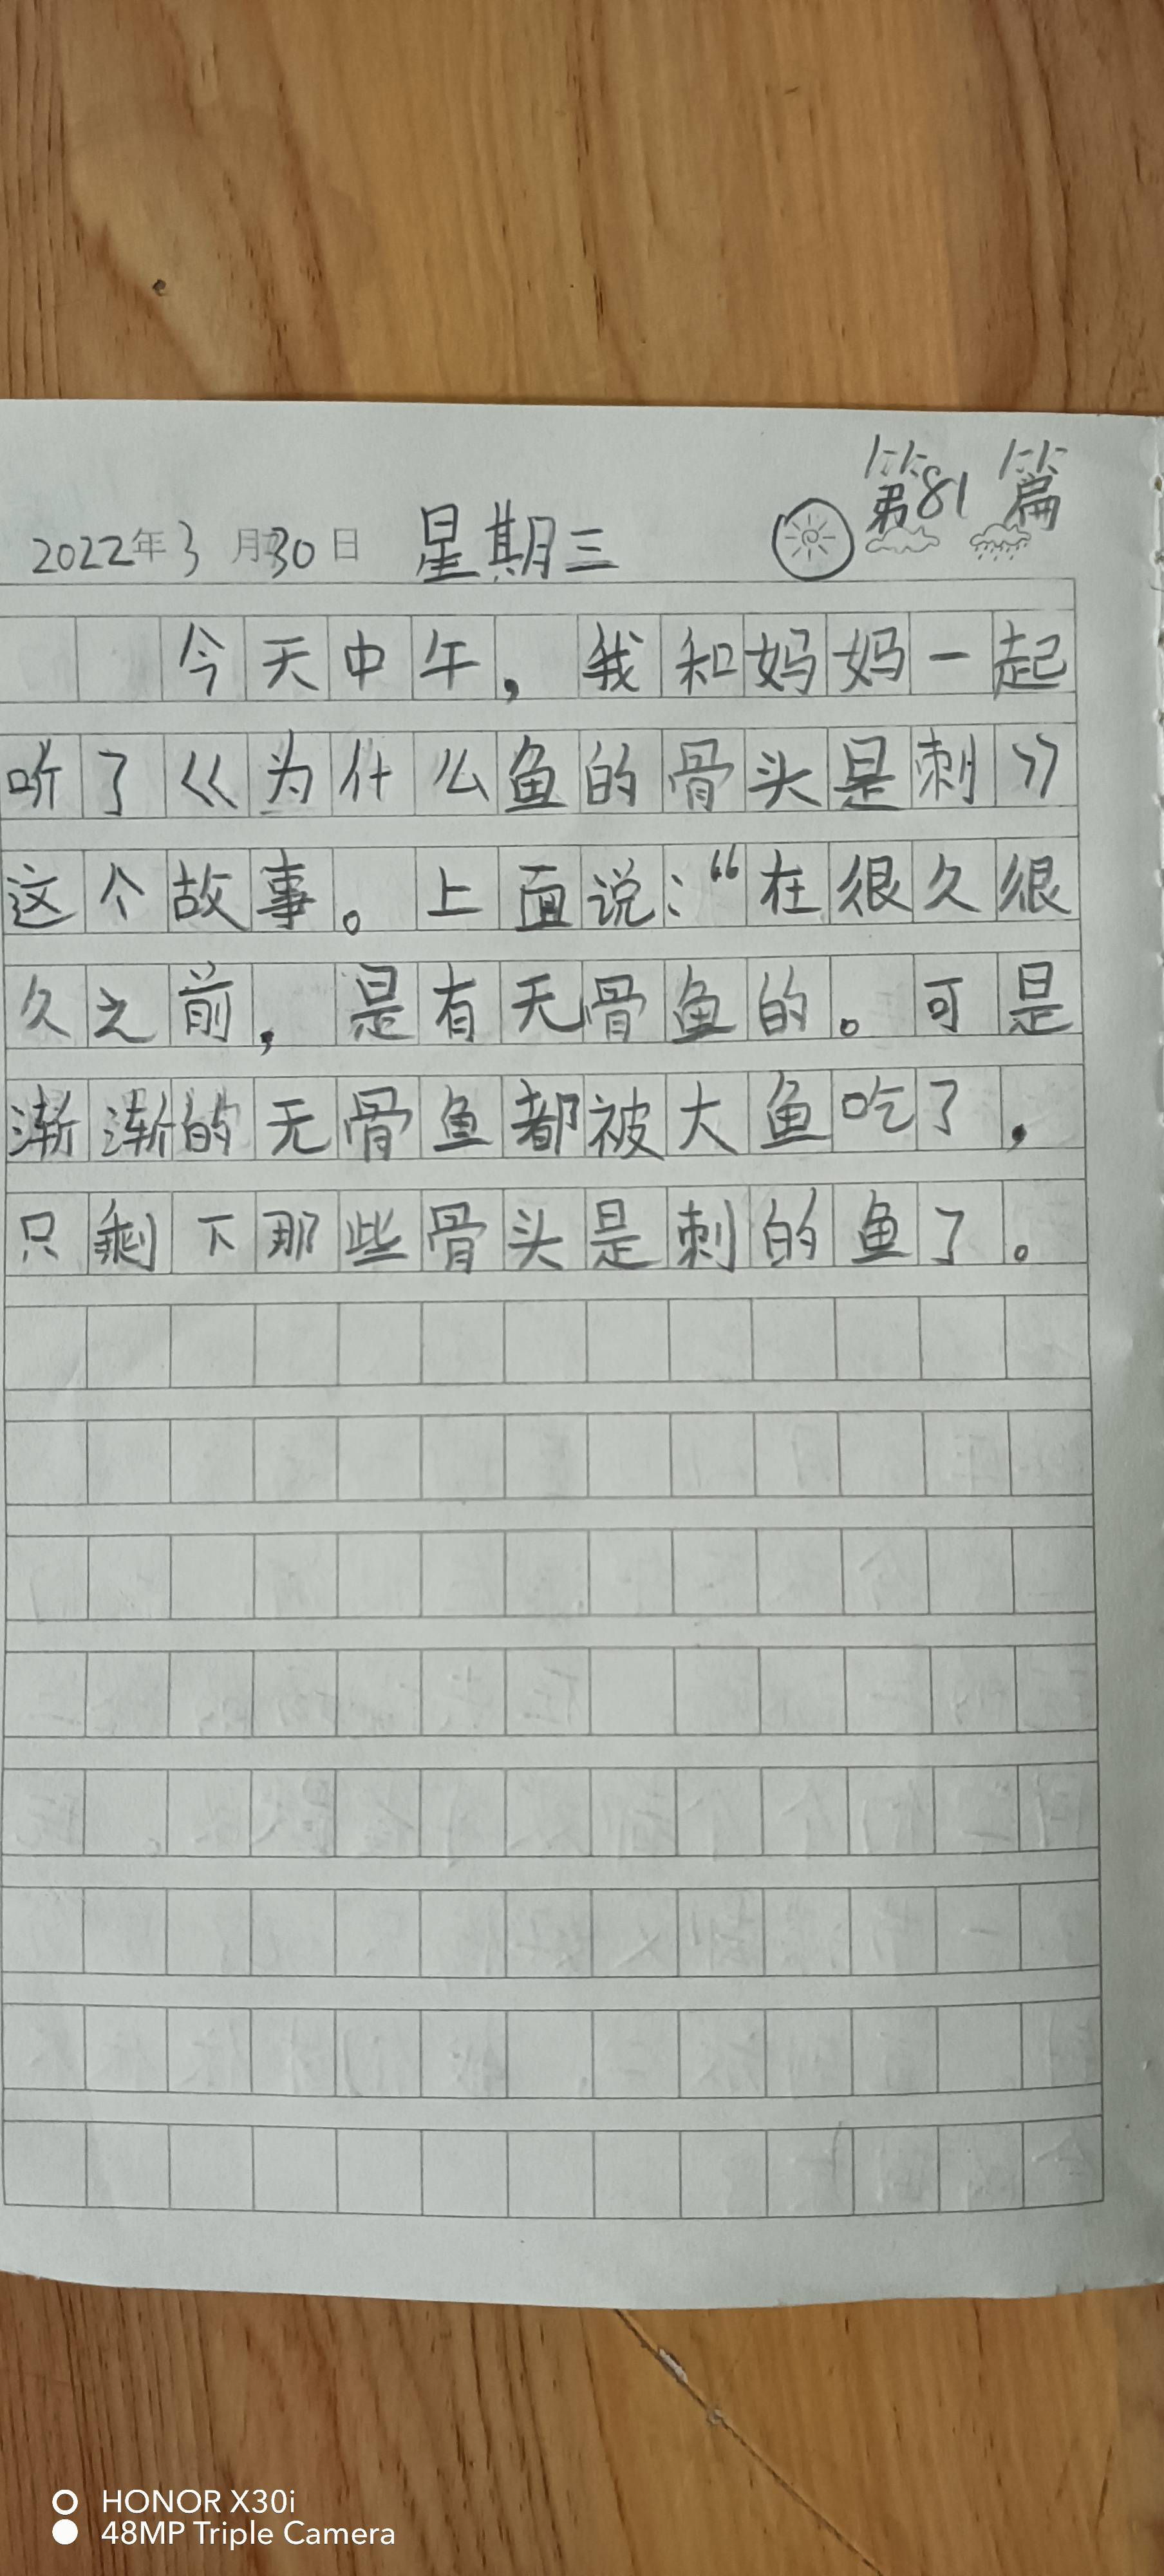 第81篇
2022年3月30日 星期三
今天中午，我和妈妈一起
听了《为什么鱼的骨头是刺》
这个故事。上面说：“在很久很
久之前，是有无骨鱼的。可是
渐渐的无骨鱼都被大鱼吃了，
只剩下那些骨头是刺的鱼了。
HONOR X30i
48MP Triple Camera